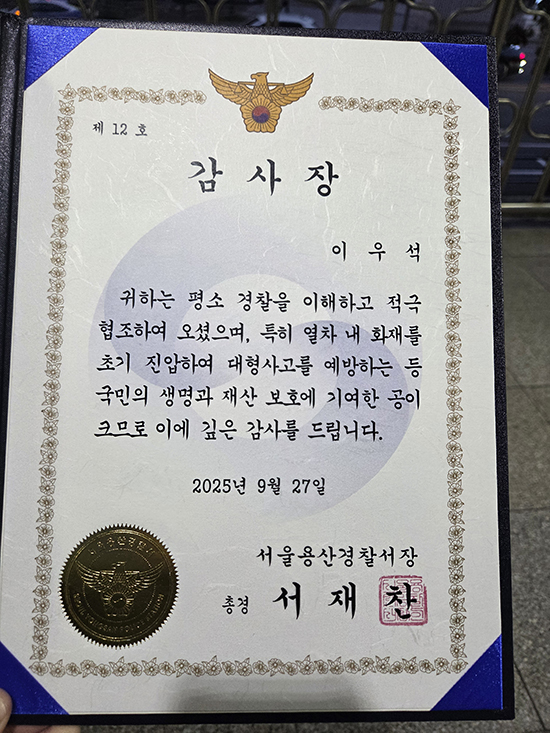 제 12 호
감 사 장
이 우 석
귀하는 평소 경찰을 이해하고 적극
협조하여 오셨으며, 특히 열차 내 화재를
초기 진압하여 대형사고를 예방하는 등
국민의 생명과 재산 보호에 기여한 공이
크므로 이에 깊은 감사를 드립니다.
2025년 9월 27일
서울용산경찰서장
총경 서 재 찬